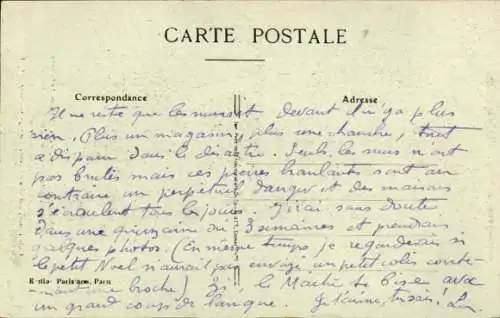 CARTE POSTALE
Correspondance Adresse
Il ne reste que les murs et, devant il n'y a plus
rien. Plus un magasin, plus une chambre, tout
a disparu dans le désastre. Seuls les murs n'ont
pas brulés mais ces pierres branlantes sont au
contraire un perpetuel danger et des maisons
s'écroulent tous les jours. J'irai sans doute
dans une quinzaine ou 3 semaines et prendrai
quelques photos. (En même temps je regarderai si
le petit Noel n'aurait pas envoyé un petit colis conte-
nant une broche) le Machu te bise avec
un grand coup de langue.
Edition Parisienne, Paris